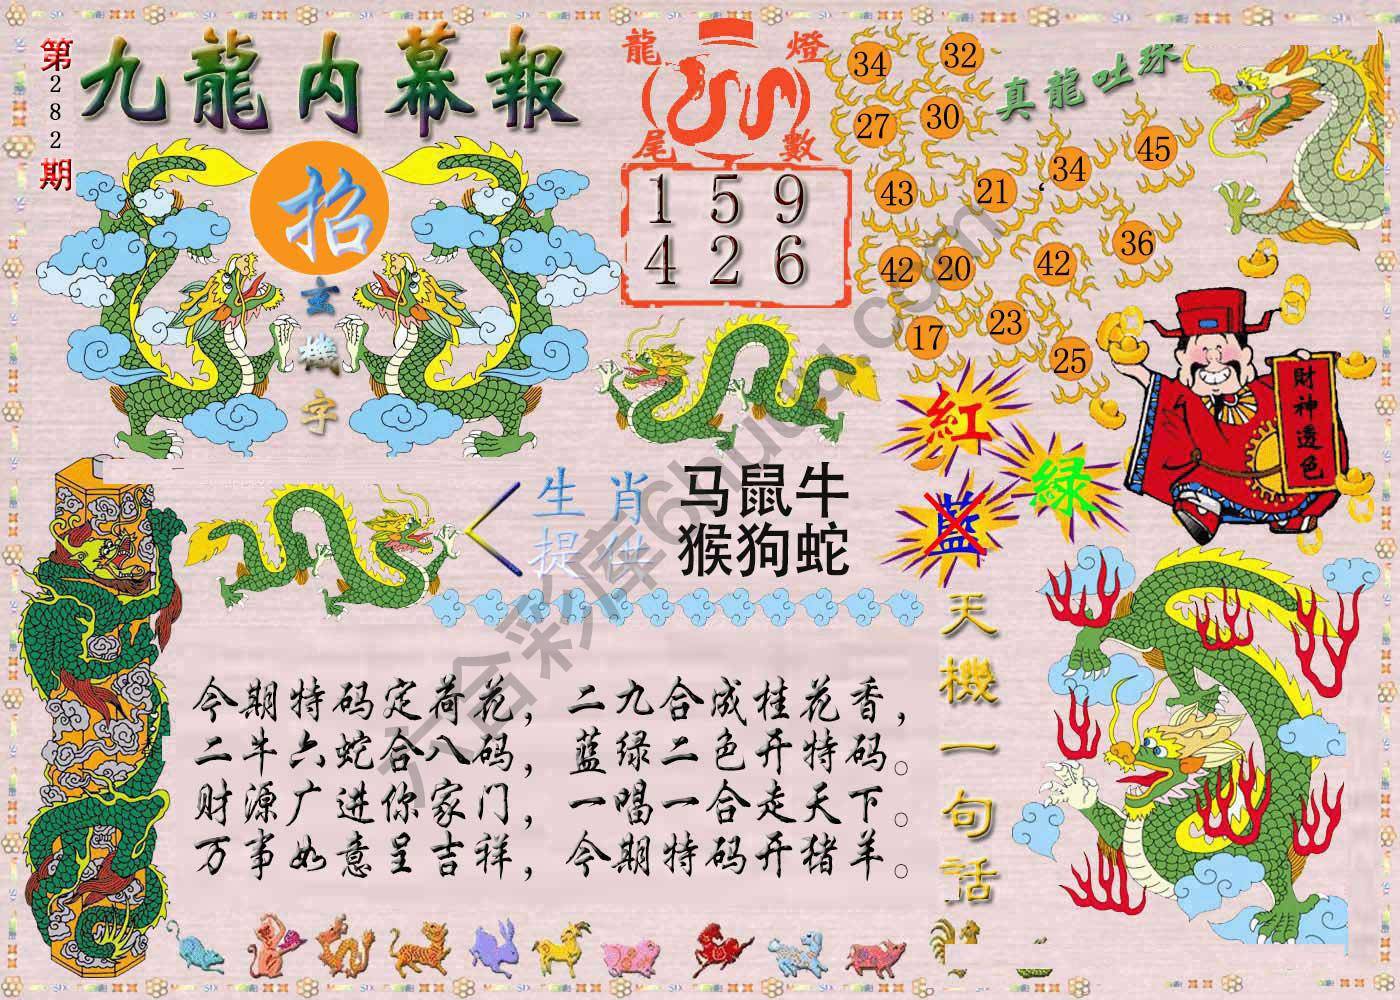 第282期
九龍内幕報
招
玄機字
龍燈
尾數
1 5 9
4 2 6
真龍吐珠
34 32
27 30
43 21 34 45
42 20 42 36
17 23 25
財神透色
紅
藍
綠
生肖 马鼠牛
提供 猴狗蛇
今期特码定荷花，二九合成桂花香，
二牛六蛇合八码，蓝绿二色开特码。
财源广进你家门，一唱一合走天下。
万事如意呈吉祥，今期特码开猪羊。
天機一句話
六合彩库6huu.com